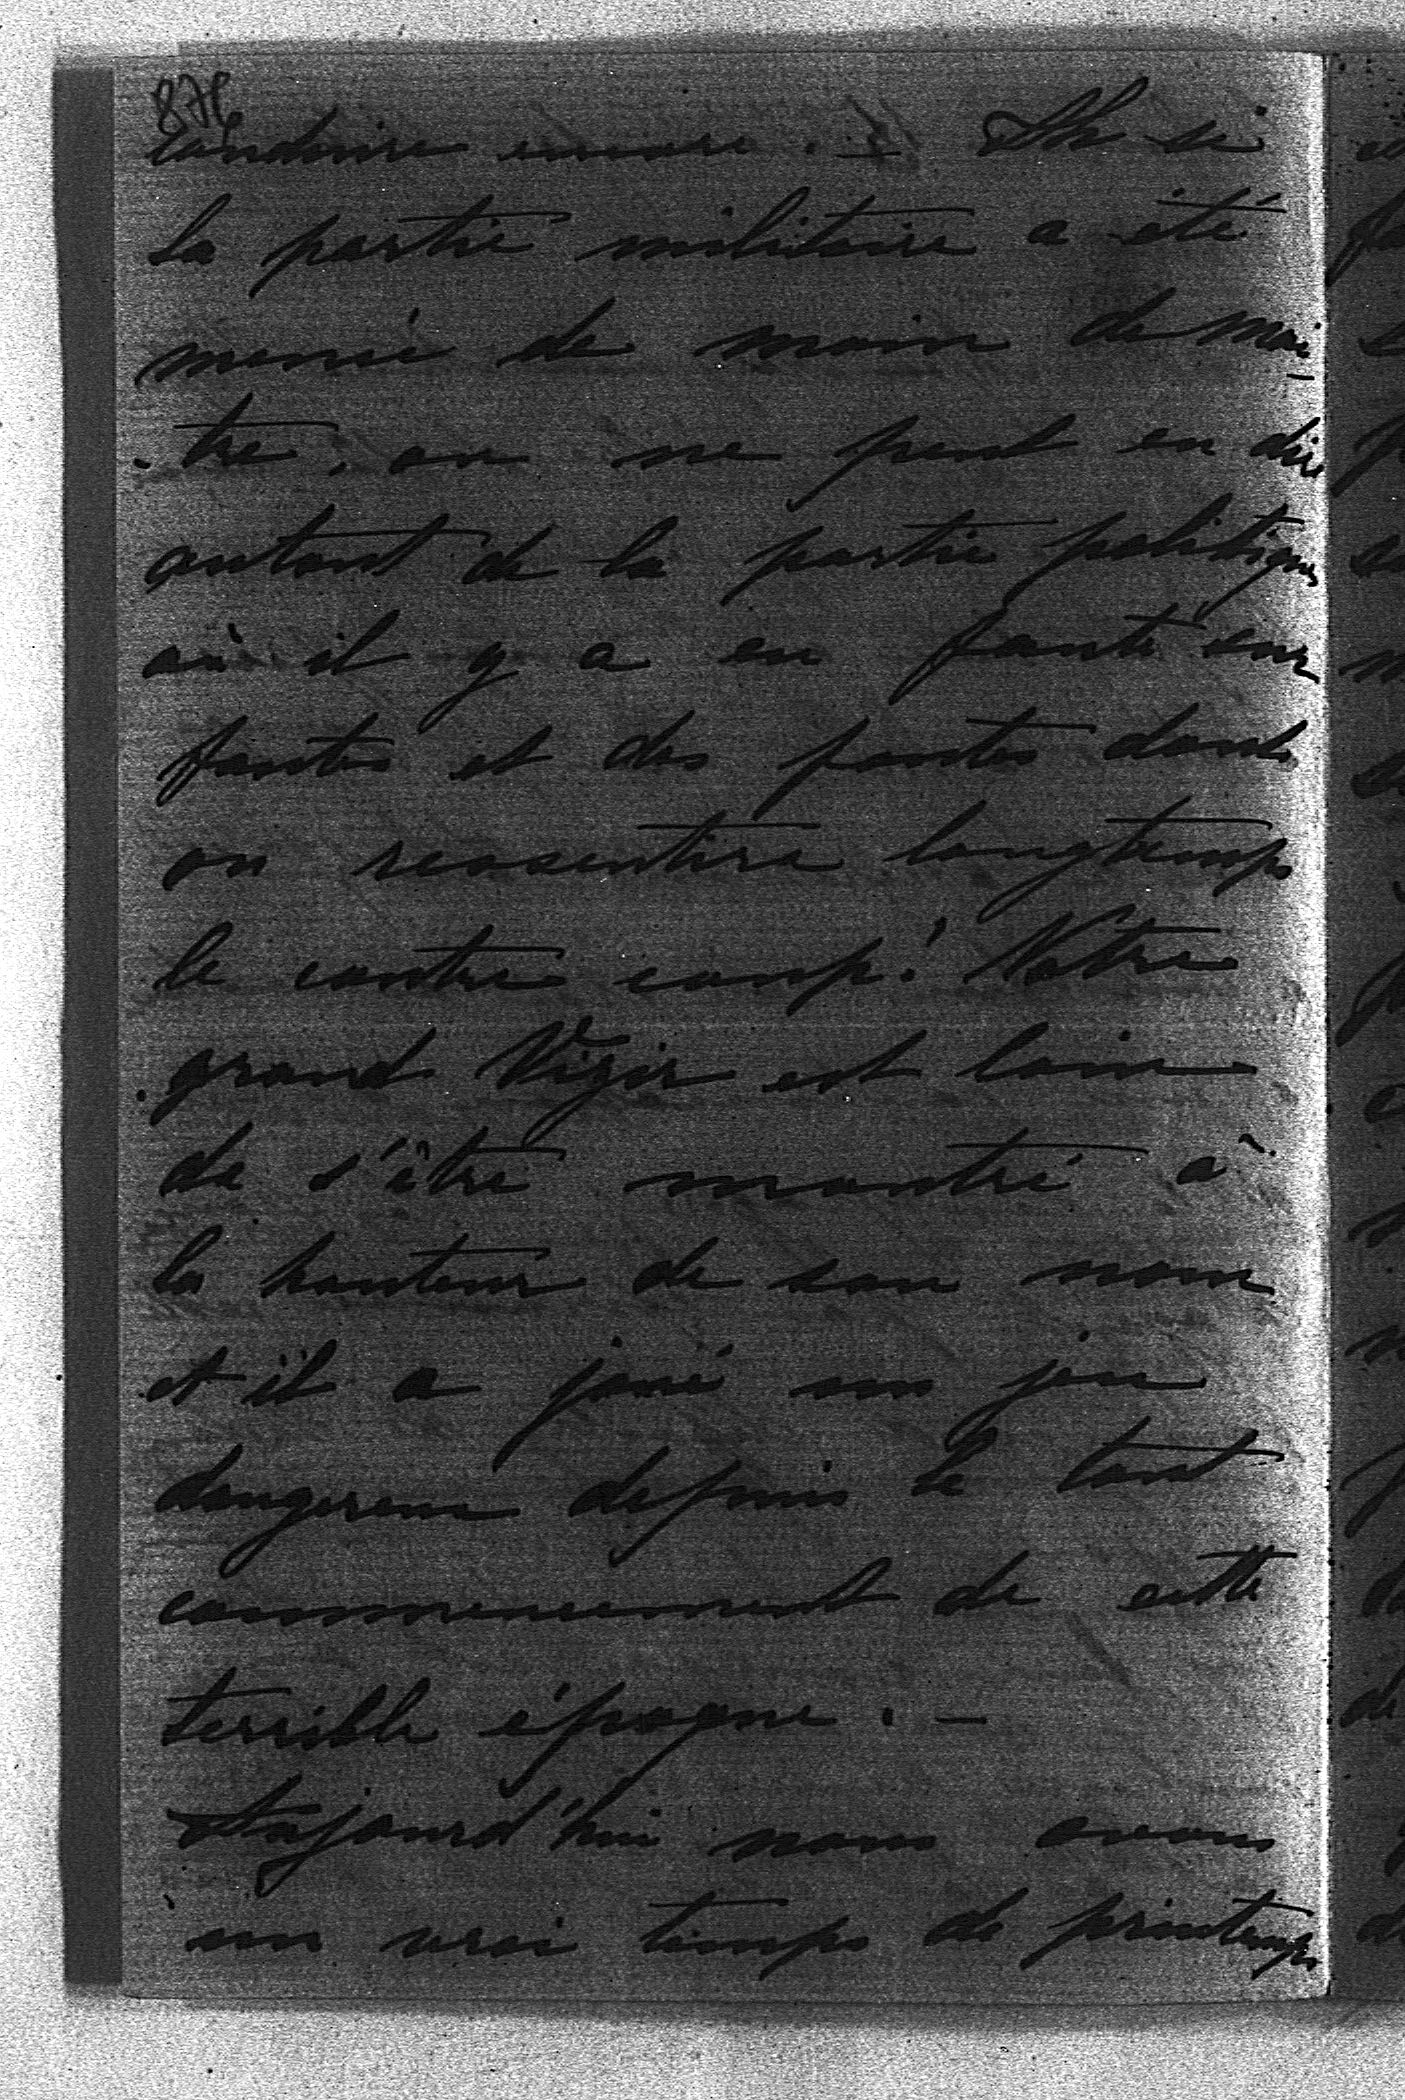 876
conduire encore. – Ah si
la partie militaire a été
menée de main de maî-
tre, on ne peut en dire
autant de la partie politique
où il y a eu faute sur
fautes et des fautes dont
on ressentira longtemps
le contre coup! Notre
grand Vizir est loin
de s'être montré à
la hauteur de son nom
et il a joué un jeu
dangereux depuis le tout
commencement de cette
terrible époque. –
Aujourd'hui nous avons
un vrai temps de printemps